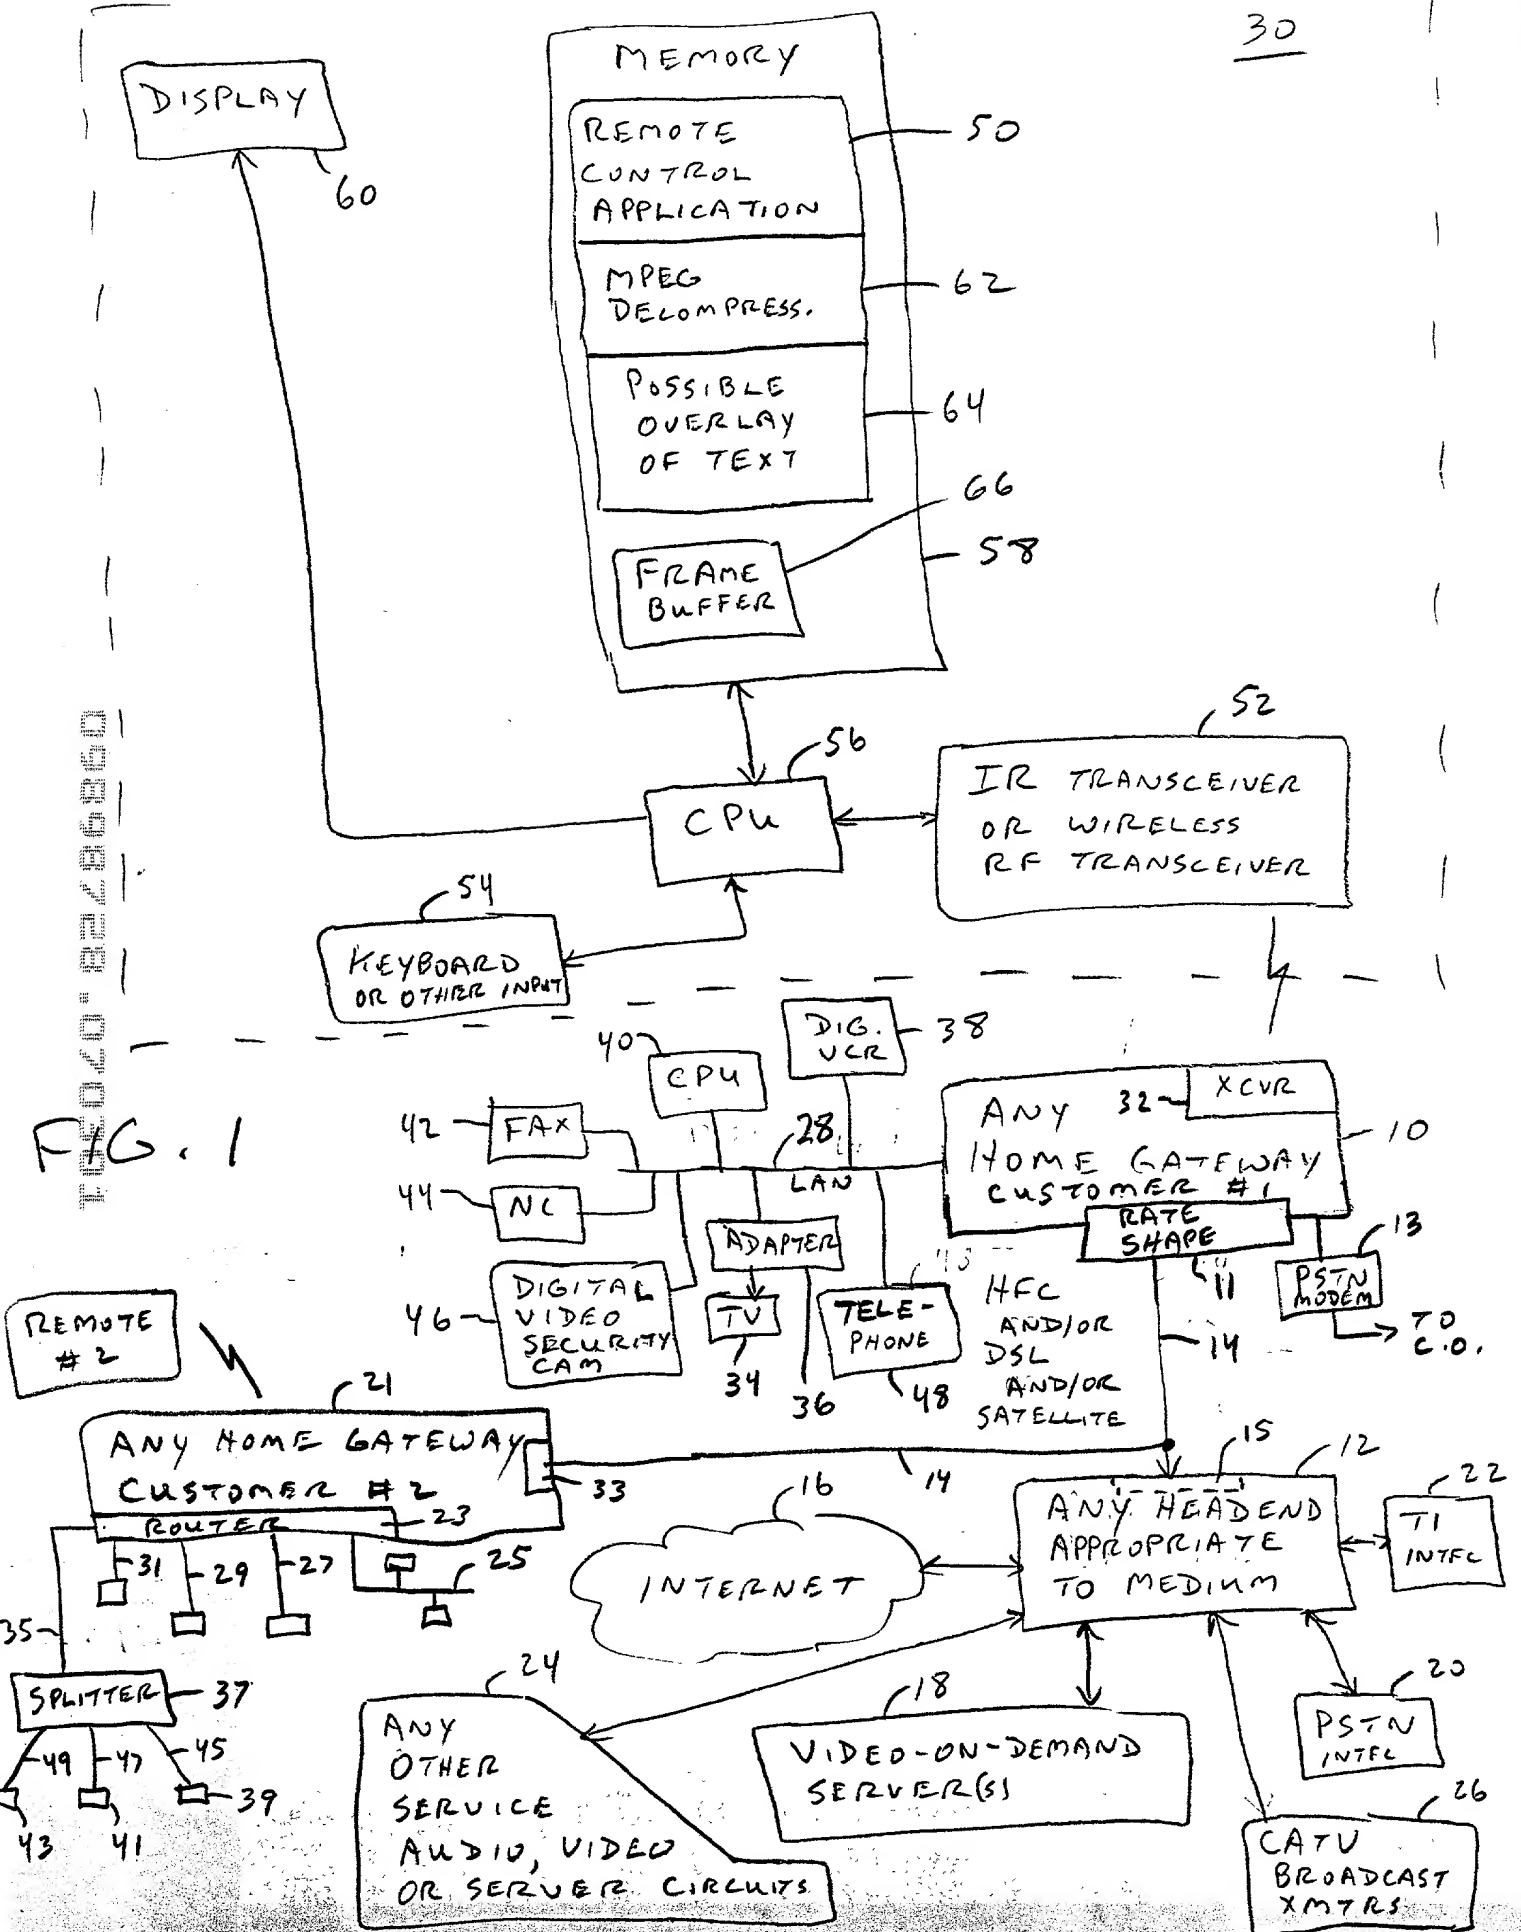 30
MEMORY
DISPLAY
60
REMOTE
CONTROL
APPLICATION
50
MPEG
DECOMPRESS.
62
POSSIBLE
OVERLAY
OF TEXT
64
66
FRAME
BUFFER
58
52
56
CPU
IR TRANSCEIVER
OR WIRELESS
RF TRANSCEIVER
54
KEYBOARD
OR OTHER INPUT
FIG. 1
40
CPU
DIG.
VCR
38
42
FAX
28
LAN
44
NC
ADAPTER
TV
34
36
46
DIGITAL
VIDEO
SECURITY
CAM
TELE-
PHONE
48
XCVR
32
ANY
HOME GATEWAY
CUSTOMER #1
10
RATE
SHAPE
11
13
PSTN
MODEM
TO
C.O.
HFC
AND/OR
DSL
AND/OR
SATELLITE
14
REMOTE
#2
21
ANY HOME GATEWAY
CUSTOMER #2
33
ROUTER
23
14
31
29
27
25
35
SPLITTER
37
49
47
45
43
41
39
16
INTERNET
15
12
ANY HEADEND
APPROPRIATE
TO MEDIUM
22
T1
INTFC
24
ANY
OTHER
SERVICE
AUDIO, VIDEO
OR SERVER CIRCUITS
18
VIDEO-ON-DEMAND
SERVER(S)
20
PSTN
INTFC
26
CATV
BROADCAST
XMTRS